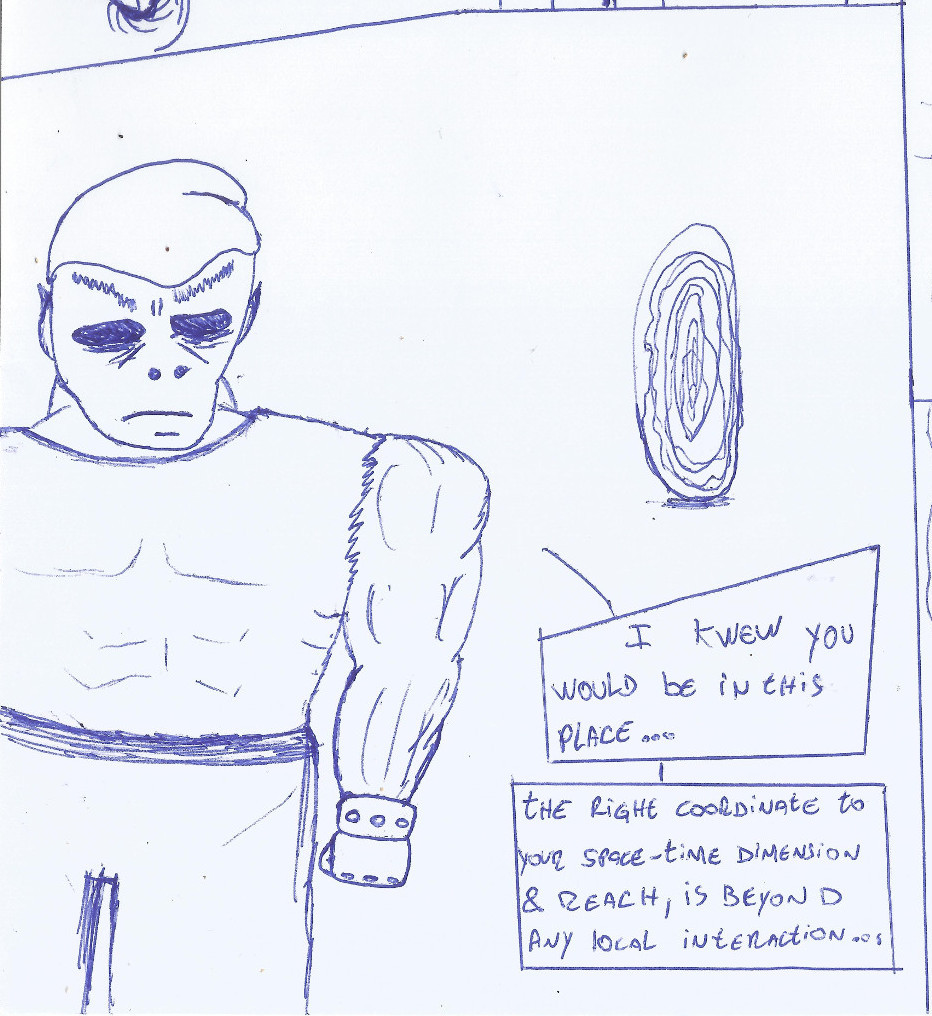 I KNEW YOU
WOULD BE IN THIS
PLACE....
THE RIGHT COORDINATE TO
YOUR SPACE-TIME DIMENSION
& REACH, IS BEYOND
ANY LOCAL INTERACTION...